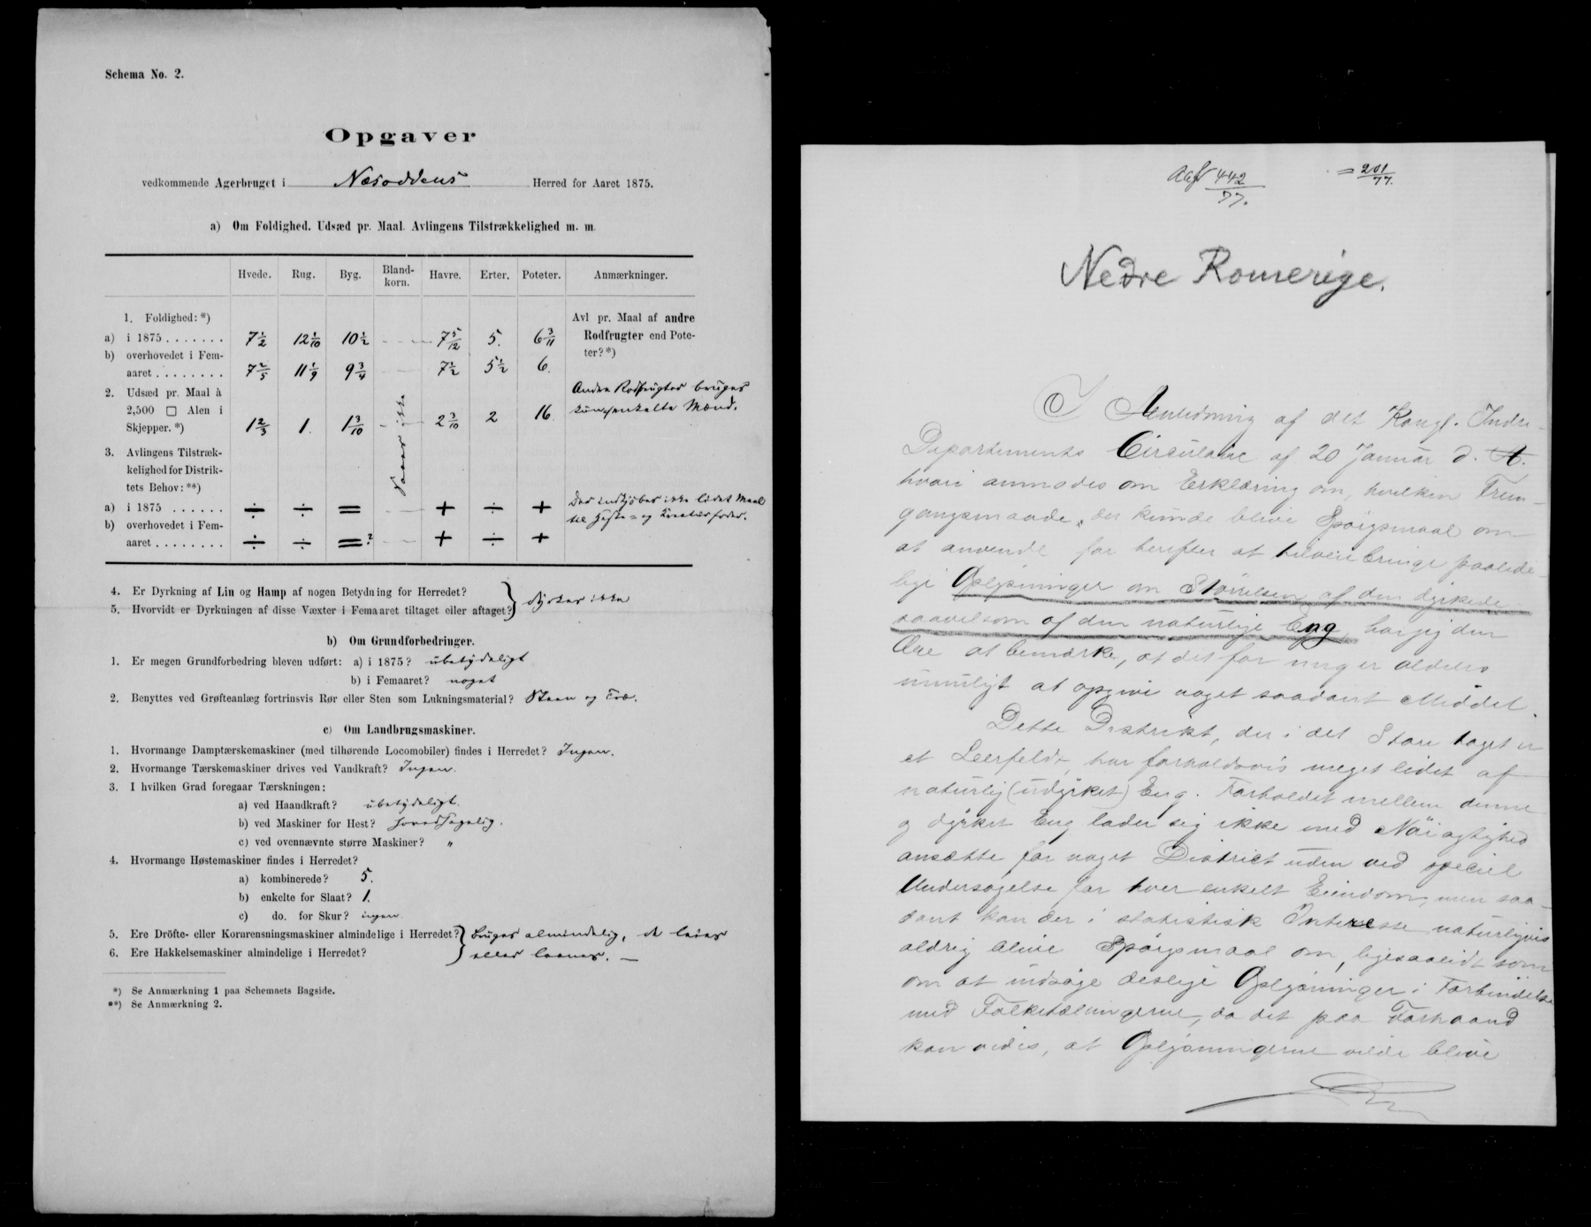 Schema No. 2.
Opgaver
vedkommende Agerbruget i Næsoddens Herred for Aaret 1875.
a) Om Foldighed. Udsæd pr. Maal. Avlingens Tilstrækkelighed m. m.
Hvede. Rug. Byg. Bland-korn. Havre. Erter. Poteter. Anmærkninger.
1. Foldighed:*)
a) i 1875 . . . . . . . 7 1/2 12 1/10 10 1/2 7 5/12 5. 6 3/11
b) overhovedet i Fem-
aaret . . . . . . . . 7 2/5 11 1/9 9 3/4 7 1/2 5 1/2 6.
2. Udsæd pr. Maal à
2,500 □ Alen i
Skjepper.*) 1 2/3 1. 1 3/10 2 3/10 2 16
3. Avlingens Tilstræk-
kelighed for Distrik-
tets Behov:**)
a) i 1875 . . . . . . ÷ ÷ = + ÷ +
b) overhovedet i Fem-
aaret . . . . . . . . ÷ ÷ =? + ÷ +
saaes ikke
Avl pr. Maal af andre
Rodfrugter end Pote-
ter?*)
Andre Rodfrugter bruges
kun enkelte Mænd.
Der indkjøbes ikke lidet Maal
til Heste- og Kreaturfoder.
4. Er Dyrkning af Lin og Hamp af nogen Betydning for Herredet?
5. Hvorvidt er Dyrkningen af disse Væxter i Femaaret tiltaget eller aftaget? dyrkes ikke
b) Om Grundforbedringer.
1. Er megen Grundforbedring bleven udført: a) i 1875? ubetydeligt
b) i Femaaret? noget
2. Benyttes ved Grøfteanlæg fortrinsvis Rør eller Sten som Lukningsmaterial? Steen og Træ.
c) Om Landbrugsmaskiner.
1. Hvormange Damptærskemaskiner (med tilhørende Locomobiler) findes i Herredet? Ingen.
2. Hvormange Tærskemaskiner drives ved Vandkraft? Ingen.
3. I hvilken Grad foregaar Tærskningen:
a) ved Haandkraft? ubetydeligt.
b) ved Maskiner for Hest? hovedsagelig.
c) ved ovennævnte større Maskiner? "
4. Hvormange Høstemaskiner findes i Herredet?
a) kombinerede? 5.
b) enkelte for Slaat? 1.
c) do. for Skur? ingen.
5. Ere Dröfte- eller Kornrensningsmaskiner almindelige i Herredet? Bruges almindelig, de leies
6. Ere Hakkelsemaskiner almindelige i Herredet? eller laanes. —
*) Se Anmærkning 1 paa Schemaets Bagside.
**) Se Anmærkning 2.
442/77.
= 201/77.
Nedre Romerige.
I Anledning af det Kongl. Indre-
Departements Circulaire af 20 Januar d. A.
hvori anmodes om Erklæring om, hvilken Frem-
gangsmaade, der kunde blive Spörgsmaal om
at anvende for herefter at tilveiebringe paalide-
lige Oplysninger om Störrelsen af den dyrkede
saavelsom af den naturlige Eng, har jeg den
Ære at bemærke, at det for mig er aldeles
umuligt at opgive noget saadant Middel.
Dette Distrikt, der i det Store taget er
et Leerfeldt, har forholdsvis meget lidet af
naturlig (udyrket) Eng. Forholdet mellem denne
og dyrket Eng lader sig ikke med Nöiagtighed
ansætte for noget District uden ved speciel
Undersøgelse for hver enkelt Eiendom, men saa-
dant kan der i statistisk Interesse naturligvis
aldrig blive Spörgsmaal om, ligesaalidt som
om at indtage deslige Oplysninger i Forbindelse
med Folketællingerne, da det paa Forhaand
kan vides, at Oplysningerne vilde blive